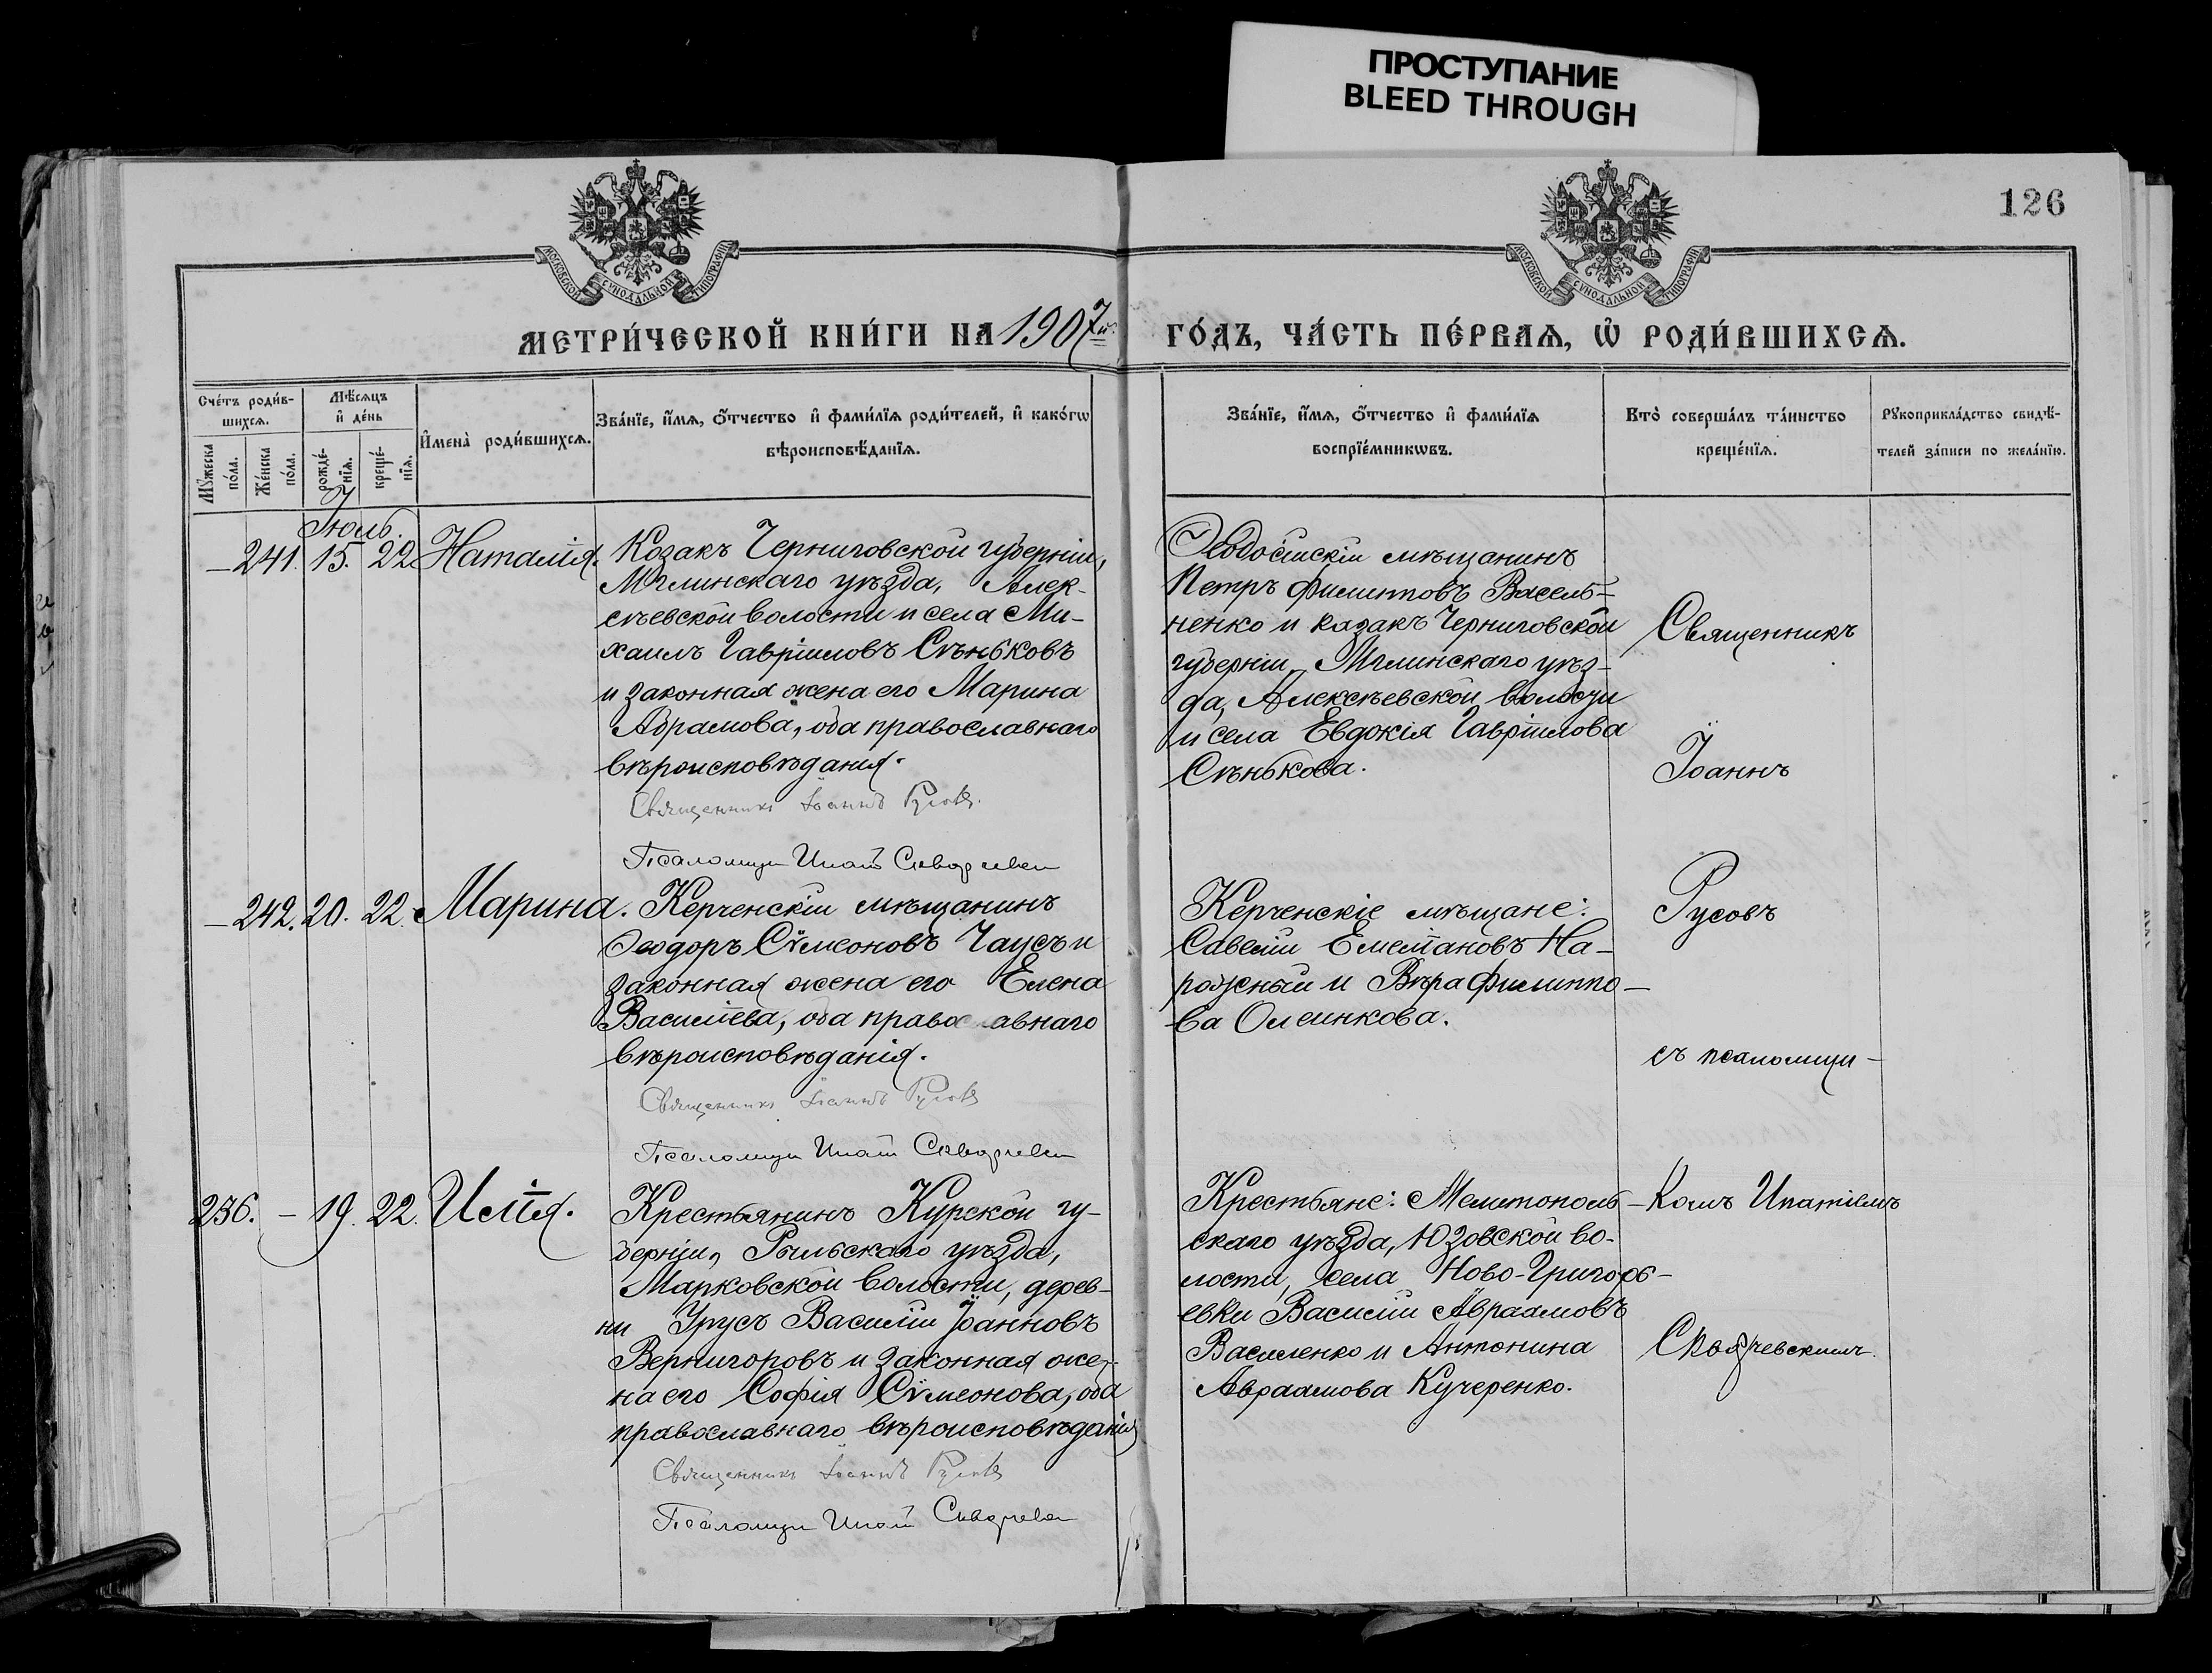 ПРОСТУПАНИЕ
BLEED THROUGH
126
МОСКОВСКОЙ СѴНОДАЛЬНОЙ ТИПОГРАФІИ
МОСКОВСКОЙ СѴНОДАЛЬНОЙ ТИПОГРАФІИ
МЕТРИ́ЧЕСКОЙ КНИ́ГИ НА 1907й
ГО́ДЪ, ЧА́СТЬ ПЕ́РВАѦ, Ѡ РОДИ́ВШИХСѦ.
Сче́тъ роди́в-
шихсѧ.
Мꙋ́жеска по́ла.
Же́нска по́ла.
Мѣ́сѧцъ
и҆ де́нь
рожде́-
нїѧ.
креще́-
нїѧ.
И҆мена̀ роди́вшихсѧ.
Зва́нїе, и҆́мѧ, ѻ҆́тчество и҆ фами́лїѧ роди́телей, и҆ како́гѡ
вѣроисповѣ́данїѧ.
Зва́нїе, и҆́мѧ, ѻ҆́тчество и҆ фами́лїѧ
воспрїе́мникѡвъ.
Кто̀ соверша́лъ та́инство
креще́нїѧ.
Рꙋкоприкла́дство свидѣ́-
телей за́писи по жела́нїю.
Іюль.
— 241. 15. 22 Наталія.
Козакъ Черниговской губерніи,
Мглинскаго уѣзда, Алек-
сѣевской волости и села Ми-
хаилъ Гавріиловъ Сѣньковъ
и законная жена его Марина
Абрамова, оба православнаго
вѣроисповѣданія.
Священникъ Іоаннъ Русовъ
Псаломщ Ипат Скворчевск
Ѳеодосійскій мѣщанинъ
Петръ Филипповъ Василь-
ненко и казакъ Черниговской
губерніи, Мглинскаго уѣз-
да, Алексѣевской волости
и села Евдокія Гавріилова
Сѣнькова.
Священникъ
Іоаннъ
— 242. 20. 22. Марина.
Керченскій мѣщанинъ
Ѳеодоръ Сѵмеоновъ Чаусъ и
законная жена его Елена
Василіева, оба православнаго
вѣроисповѣданія.
Священникъ Іоаннъ Русовъ
Псаломщ Ипат Скворчевск
Керченскіе мѣщане:
Савелій Емеліановъ На-
рожный и Вѣра Филиппо-
ва Олейникова.
Русовъ
съ псаломщи-
236. — 19. 22. Илія.
Крестьянинъ Курской гу-
берніи, Рыльскаго уѣзда,
Марковской волости, дерев-
ни Урусъ Василій Іоанновъ
Вернигоровъ и законная же-
на его Софія Сѵмеонова, оба
православнаго вѣроисповѣданія
Священникъ Іоаннъ Русовъ
Псаломщ Ипат Скворчевск
Крестьяне: Мелитополь-
скаго уѣзда, Юзовской во-
лости, села Ново-Григорь-
евки Василій Авраамовъ
Василенко и Антонина
Авраамова Кучеренко.
комъ Ипатіемъ
Скворчевскимъ.